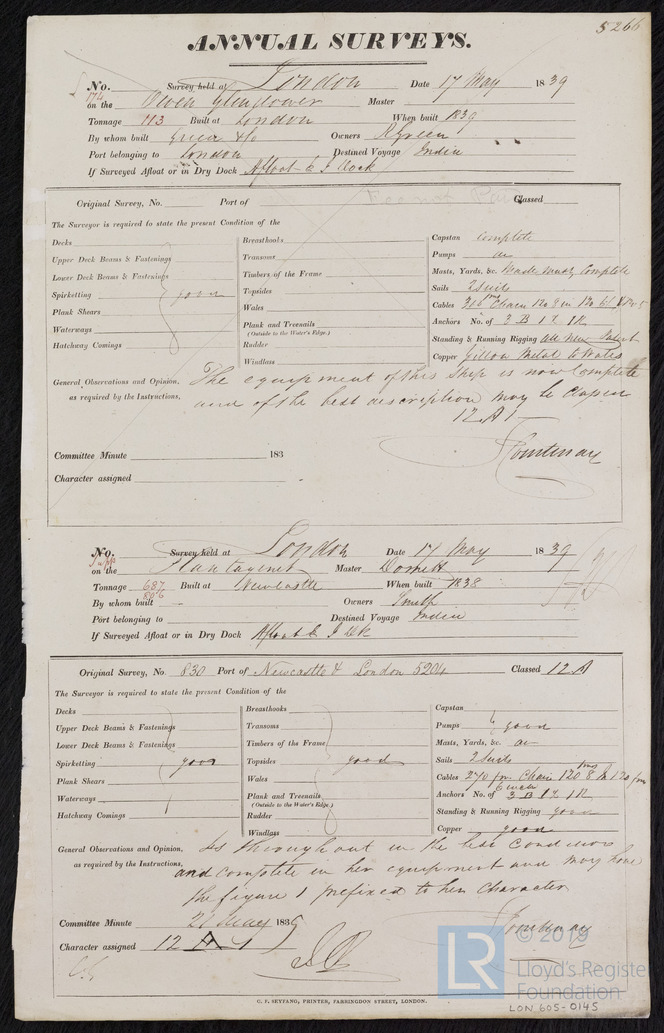 5266
ANNUAL SURVEYS.
No. Survey held at London Date 17 May 1839
on the Owen Glendower Master
Tonnage Built at London When built 1839
By whom built Green & Co Owners R Green
Port belonging to London Destined Voyage India
If Surveyed Afloat or in Dry Dock Afloat & I Dock
Original Survey, No. Port of Classed
The Surveyor is required to state the present Condition of the
Decks
Upper Deck Beams & Fastenings
Lower Deck Beams & Fastenings
Spirketting good
Plank Shears
Waterways
Hatchway Comings
Breasthooks
Transoms
Timbers of the Frame
Topsides
Wales
Plank and Treenails
(Outside to the Water's Edge.)
Rudder
Windlass
Capstan complete
Pumps
Masts, Yards, &c. Made Masts, Complete
Sails 2 suits
Cables Chain
Anchors No. of 3 B 1 S 1 K
Standing & Running Rigging all New Patent
Copper Yellow Metal to Wales
General Observations and Opinion, The equipment of this Ship is now Complete
as required by the Instructions, and of the best description may be Classed
12 A 1
Committee Minute 183
Character assigned
No. Survey held at London Date 17 May 1839
on the Plantagenet Master Domett
Tonnage 687 Built at Newcastle When built 1838
806
By whom built - Owners Smith
Port belonging to Destined Voyage India
If Surveyed Afloat or in Dry Dock Afloat & I Dk
Original Survey, No. 830 Port of Newcastle & London 5204 Classed 12 A
The Surveyor is required to state the present Condition of the
Decks
Upper Deck Beams & Fastenings
Lower Deck Beams & Fastenings
Spirketting good
Plank Shears
Waterways
Hatchway Comings
Breasthooks
Transoms
Timbers of the Frame
Topsides good
Wales
Plank and Treenails
(Outside to the Water's Edge.)
Rudder
Windlass
Capstan
Pumps good
Masts, Yards, &c.
Sails 2 Suits
Cables 270 fm Chain 120
Anchors No. of 3 B 1 S 1 K
Standing & Running Rigging good
Copper good
General Observations and Opinion, Is throughout in the best Condition
as required by the Instructions, and complete in her equipment and may have
the figure 1 prefixed to her Character
Committee Minute 21 May 1839
Character assigned 12 A 1
C. F. SEYFANG, PRINTER, FARRINGDON STREET, LONDON.
LR © 2019
Lloyd's Register
Foundation
LON 605-0145